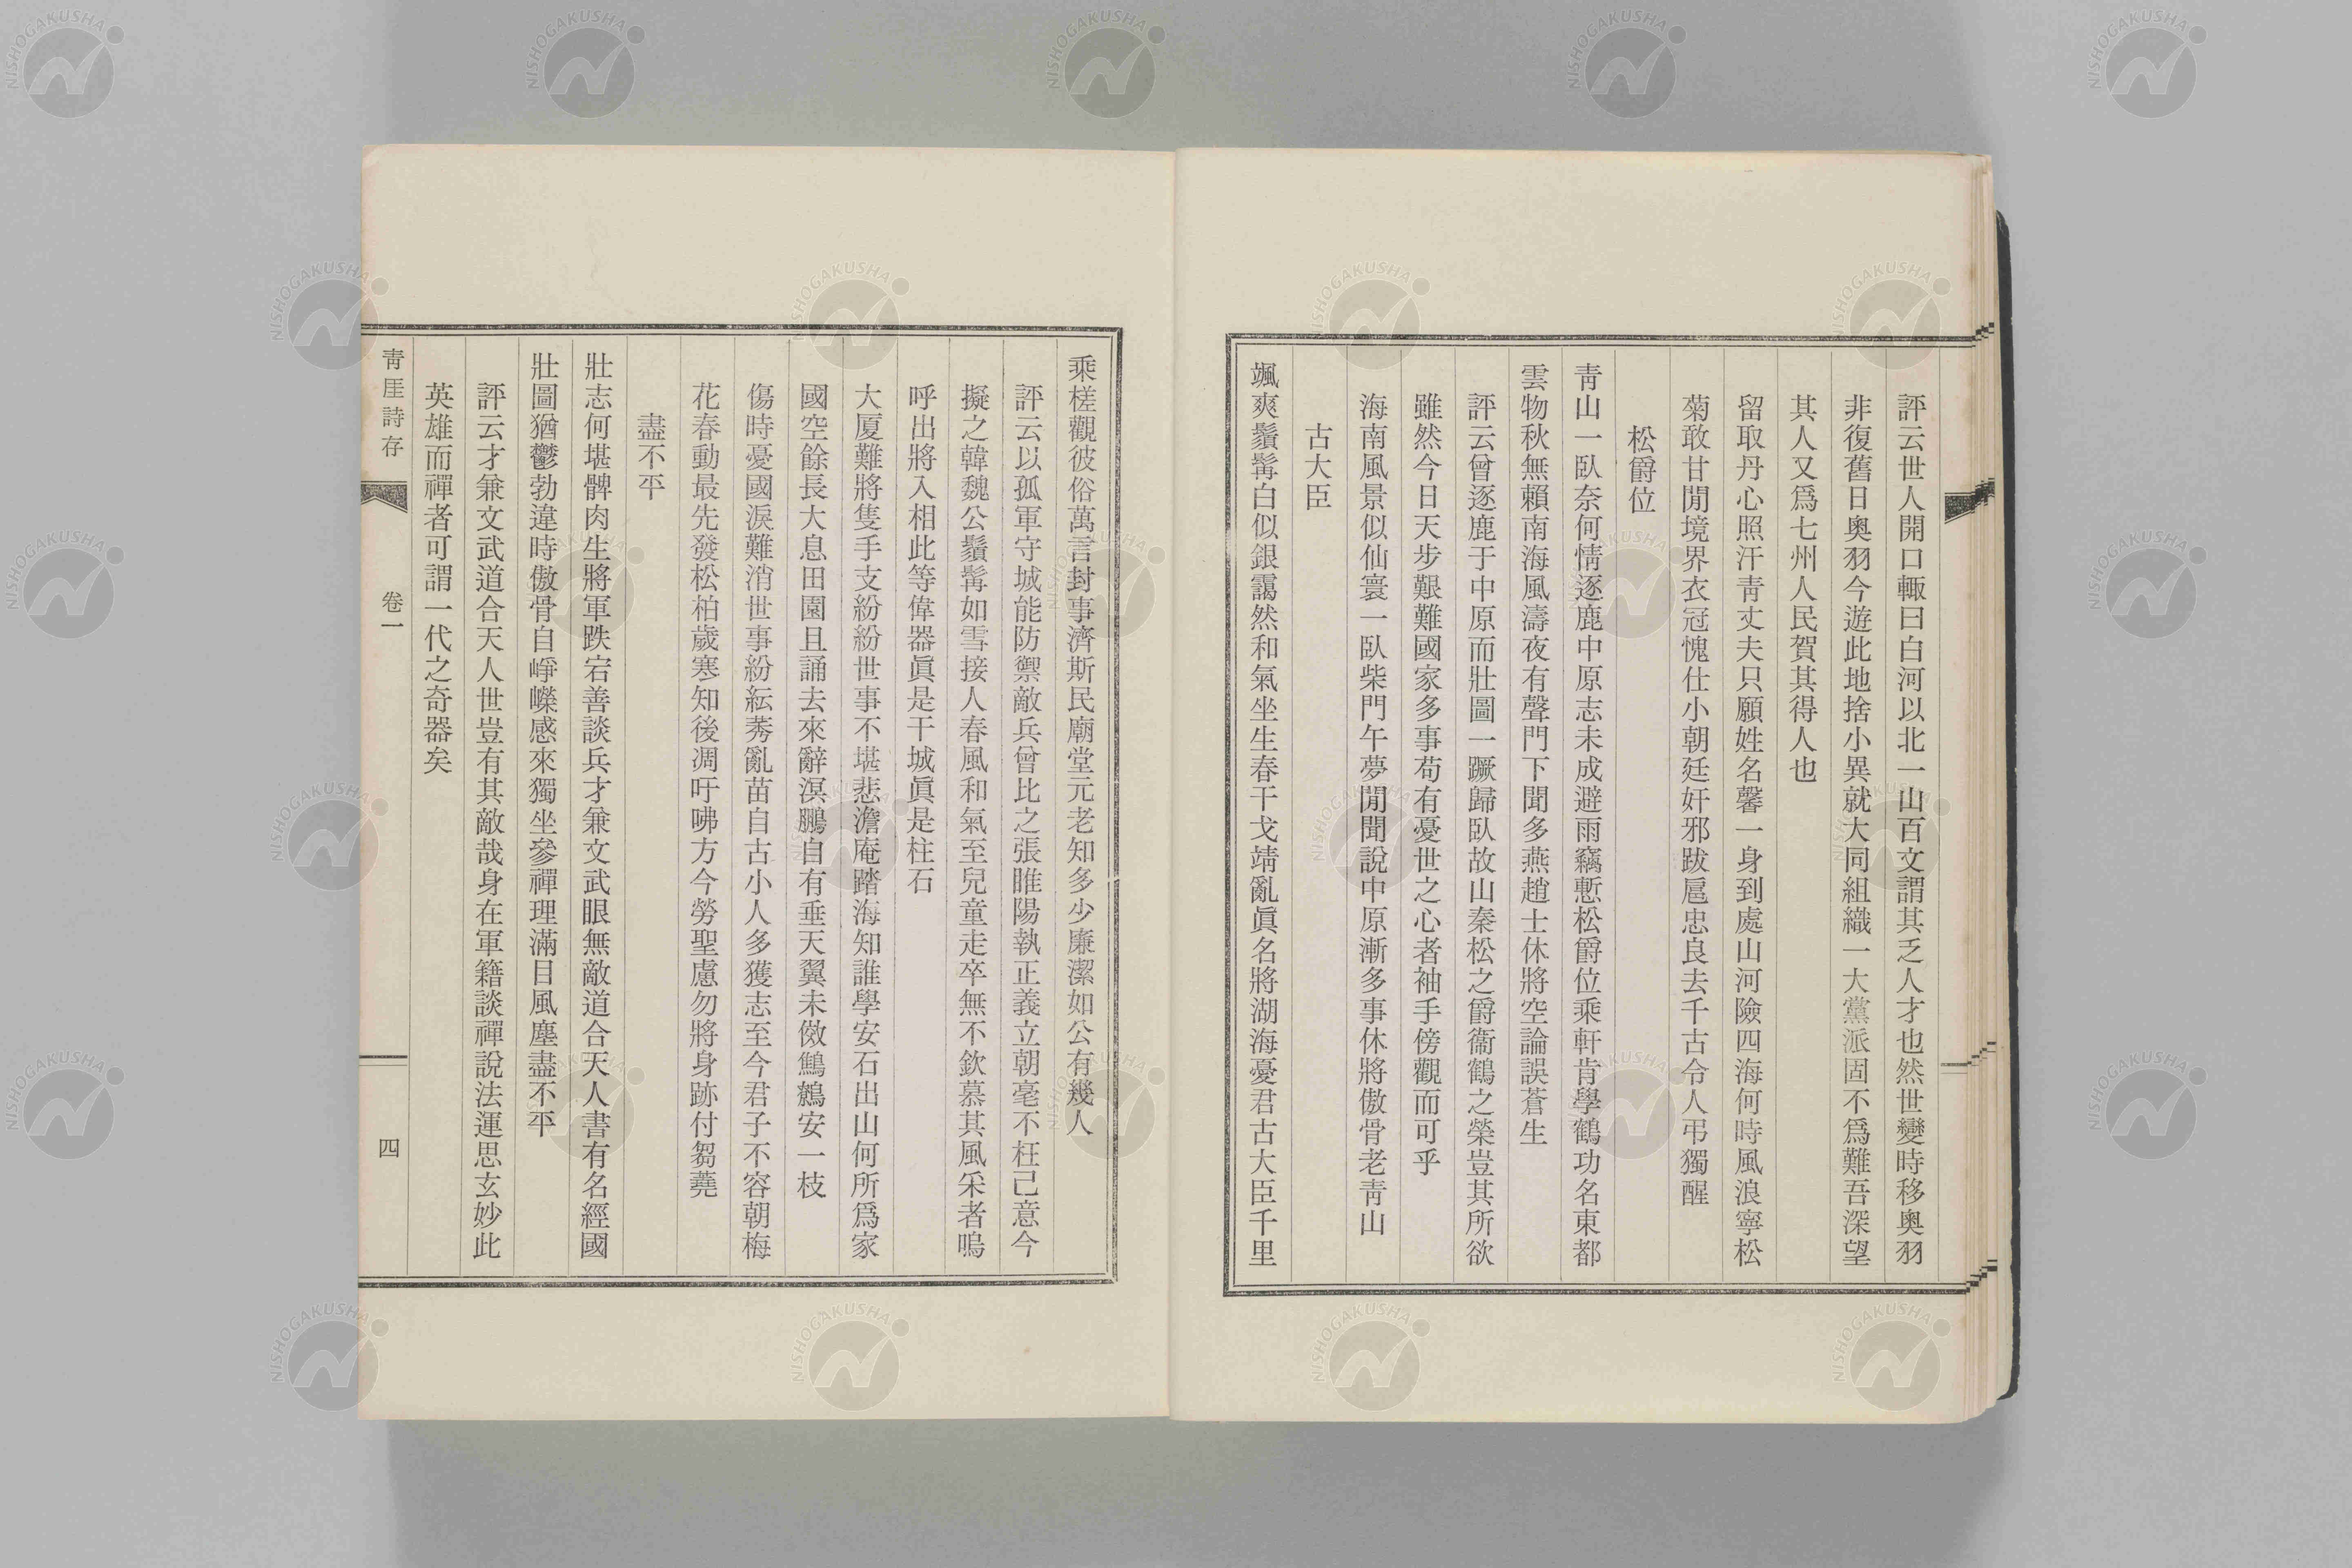 評云世人開口輙曰白河以北一山百文謂其乏人才也然世變時移奧羽
非復舊日奧羽今遊此地捨小異就大同組織一大黨派固不爲難吾深望
其人又爲七州人民賀其得人也
留取丹心照汗靑丈夫只願姓名馨一身到處山河險四海何時風浪寧松
菊敢甘閒境界衣冠愧仕小朝廷奸邪跋扈忠良去千古令人弔獨醒
松爵位
靑山一臥奈何情逐鹿中原志未成避雨竊慙松爵位乘軒肯學鶴功名東都
雲物秋無賴南海風濤夜有聲門下聞多燕趙士休將空論誤蒼生
評云曾逐鹿于中原而壯圖一蹶歸臥故山秦松之爵衞鶴之榮豈其所欲
雖然今日天步艱難國家多事苟有憂世之心者袖手傍觀而可乎
海南風景似仙寰一臥柴門午夢閒聞說中原漸多事休將傲骨老靑山
古大臣
颯爽鬚髯白似銀靄然和氣坐生春干戈靖亂眞名將湖海憂君古大臣千里
乘槎觀彼俗萬言封事濟斯民廟堂元老知多少廉潔如公有幾人
評云以孤軍守城能防禦敵兵曾比之張睢陽執正義立朝毫不枉己意今
擬之韓魏公鬚髯如雪接人春風和氣至兒童走卒無不欽慕其風采者嗚
呼出將入相此等偉器眞是干城眞是柱石
大厦難將隻手支紛紛世事不堪悲澹庵踏海知誰學安石出山何所爲家
國空餘長大息田園且誦去來辭溟鵬自有垂天翼未傚鷦鷯安一枝
傷時憂國淚難消世事紛紜莠亂苗自古小人多獲志至今君子不容朝梅
花春動最先發松柏歲寒知後凋吁咈方今勞聖慮勿將身跡付芻蕘
盡不平
壯志何堪髀肉生將軍跌宕善談兵才兼文武眼無敵道合天人書有名經國
壯圖猶鬱勃違時傲骨自崢嶸感來獨坐參禪理滿目風塵盡不平
評云才兼文武道合天人世豈有其敵哉身在軍籍談禪說法運思玄妙此
英雄而禪者可謂一代之奇器矣
靑厓詩存 卷一 四
NISHOGAKUSHA